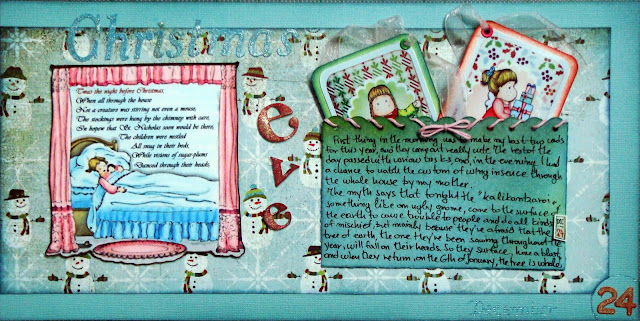 Christmas
eve
'Twas the night before Christmas,
When all through the house
Not a creature was stirring not even a mouse,
The stockings were hung by the chimney with care,
In hopes that St. Nicholas soon would be there;
The children were nestled
All snug in their beds,
While visions of sugar-plums
Danced through their heads;
First thing in the morning was to make my last two cards
for this year, and they came out really cute. The rest of the
day passed with various tasks and, in the evening, I had
a chance to watch the custom of using incense through
the whole house by my mother.
The myth says that tonight the "kalikantzaroi",
something like an ugly gnome, come to the surface of
the earth to cause trouble to people and do all kinds
of mischief, but mainly because they're afraid that the
tree of earth, the one they've been sawing throughout the
year, will fall on their heads. So they surface, have a blast,
and when they return, on the 6th of January, the tree is whole.
December
24